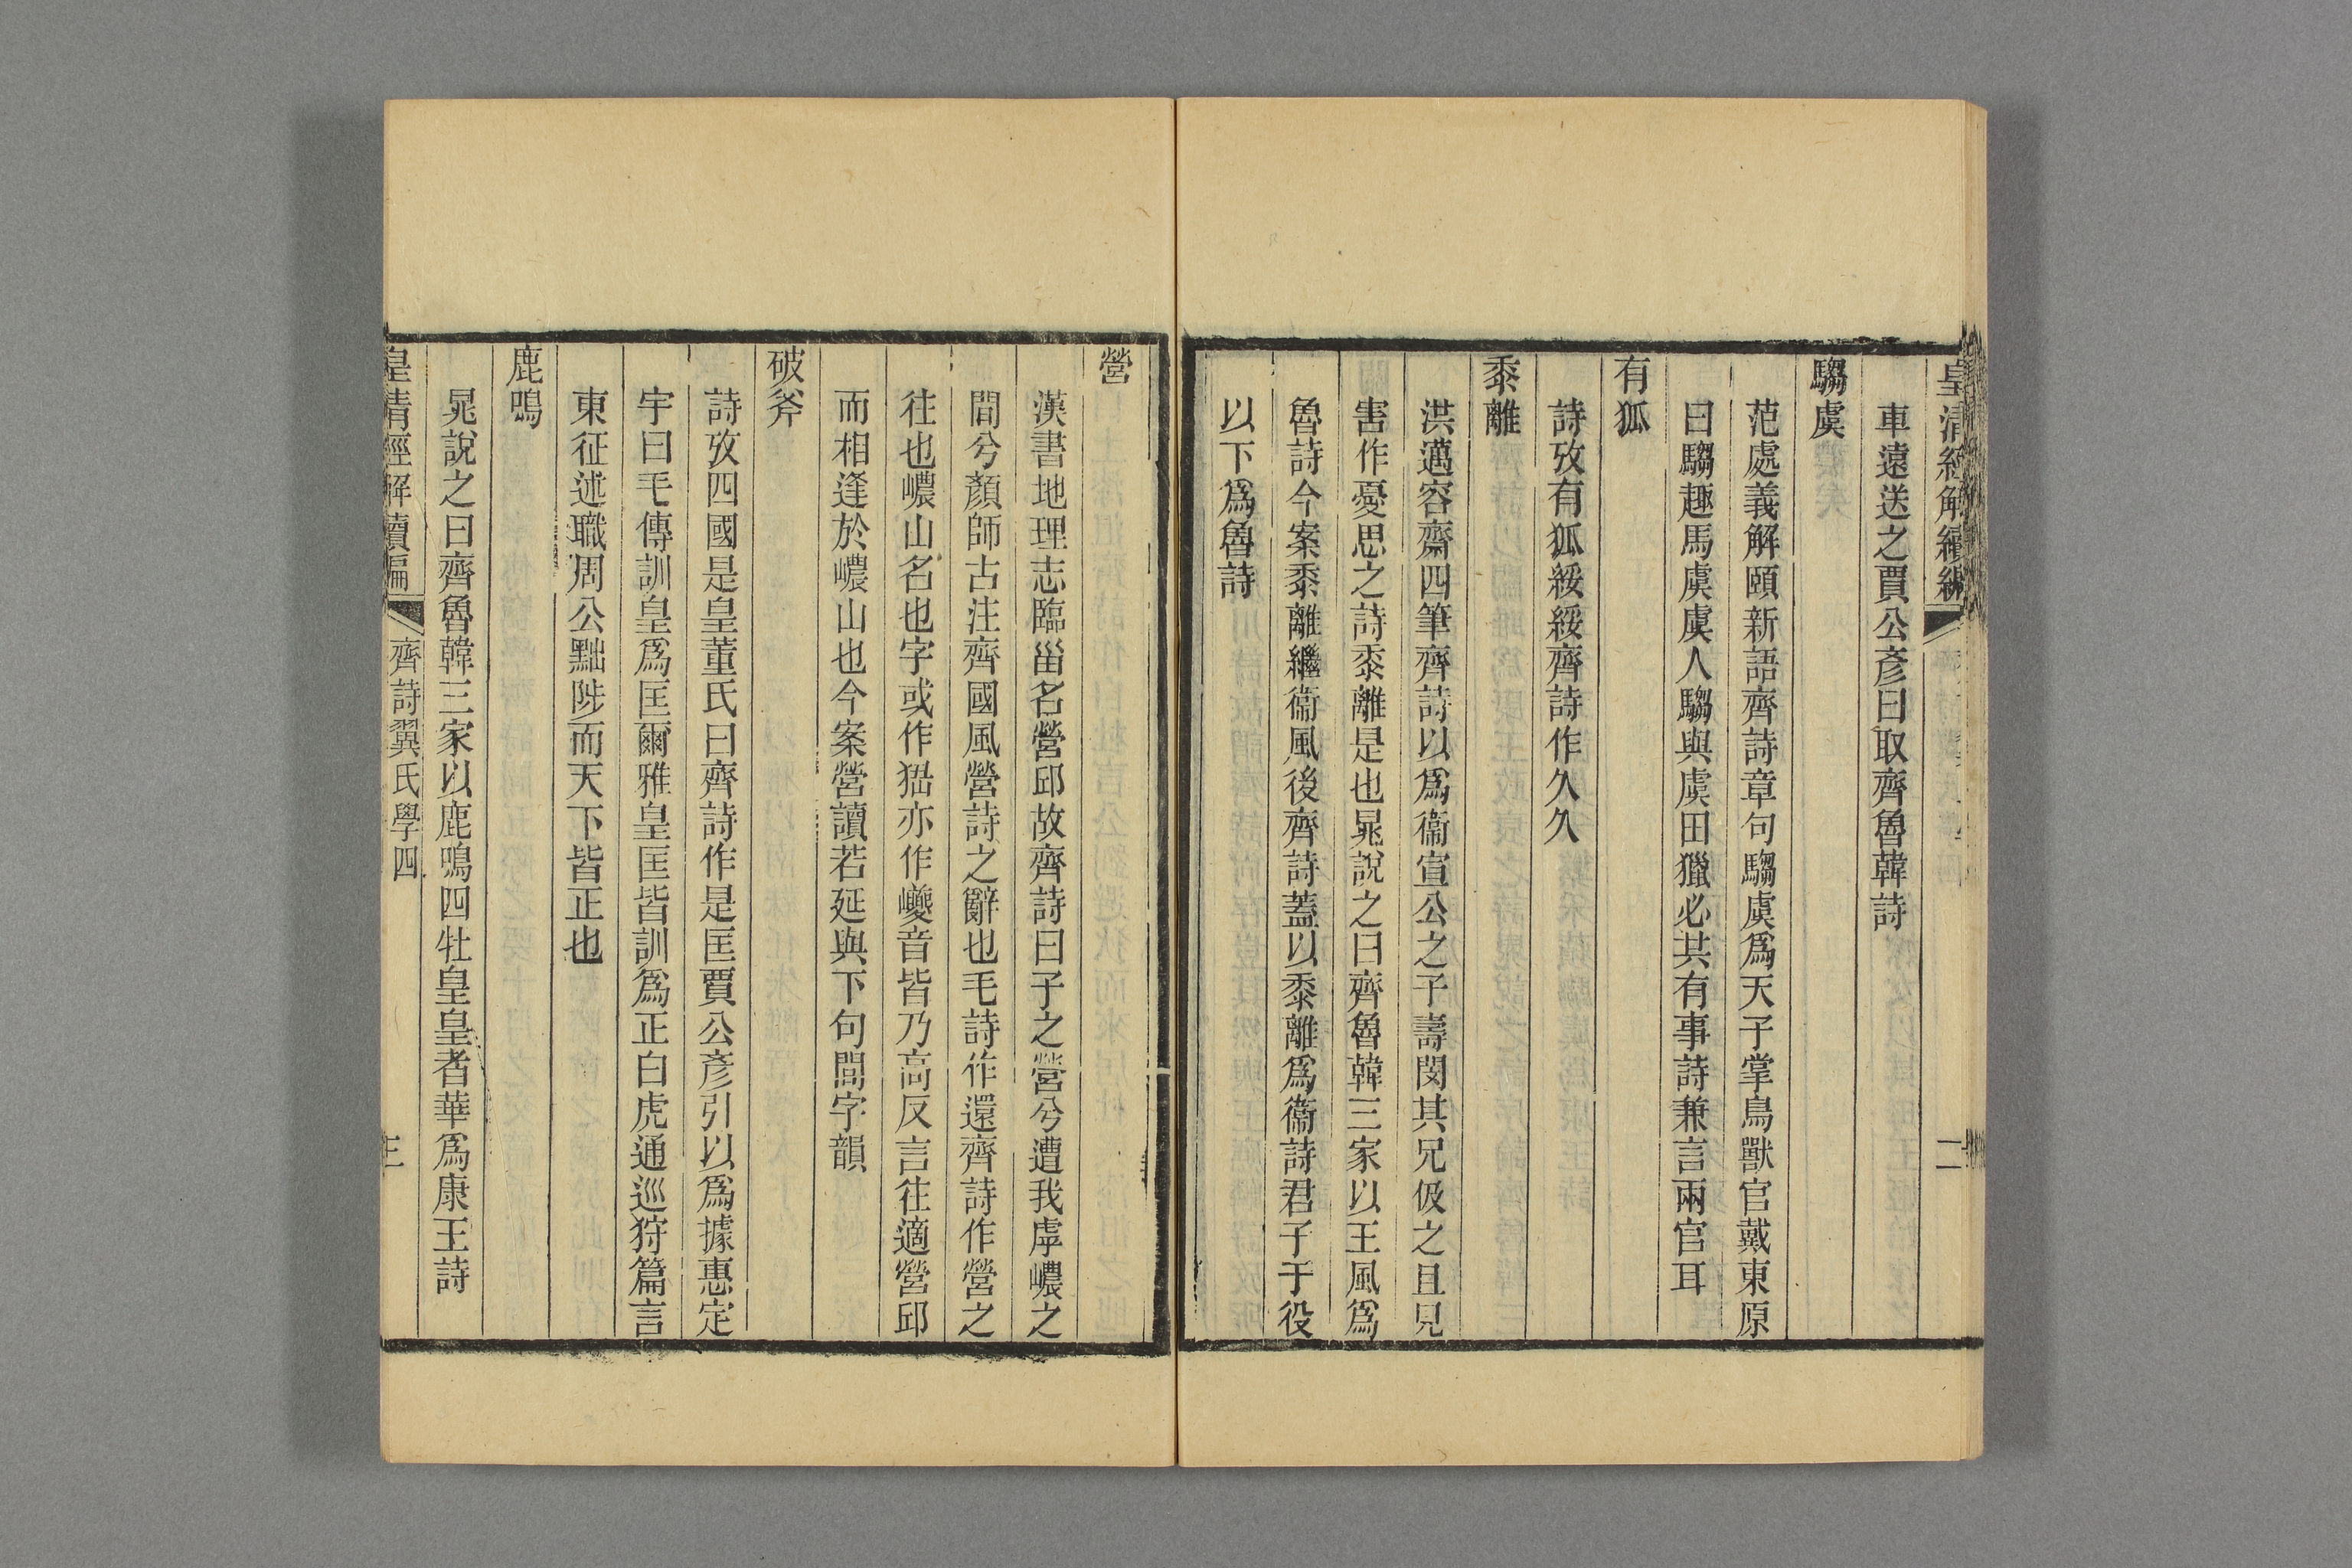 皇清經解續編
二
車遠送之賈公彥曰取齊魯韓詩
騶虞
范處義解頤新語齊詩章句騶虞爲天子掌鳥獸官戴東原
曰騶趣馬虞虞人騶與虞田獵必共有事詩兼言兩官耳
有狐
詩攷有狐綏綏齊詩作夂夂
黍離
洪邁容齋四筆齊詩以爲衞宣公之子壽閔其兄伋之且見
害作憂思之詩黍離是也晁說之曰齊魯韓三家以王風爲
魯詩今案黍離繼衞風後齊詩蓋以黍離爲衞詩君子于役
以下爲魯詩
營
漢書地理志臨甾名營邱故齊詩曰子之營兮遭我虖嶩之
間兮顏師古注齊國風營詩之辭也毛詩作還齊詩作營之
往也嶩山名也字或作猺亦作巎音皆乃高反言往適營邱
而相逢於嶩山也今案營讀若延與下句閒字韻
破斧
詩攷四國是皇董氏曰齊詩作是匡賈公彥引以爲據惠定
宇曰毛傳訓皇爲匡爾雅皇匡皆訓爲正白虎通巡狩篇言
東征述職周公黜陟而天下皆正也
鹿鳴
晁說之曰齊魯韓三家以鹿鳴四牡皇皇者華爲康王詩
皇清經解續編
齊詩翼氏學四
三